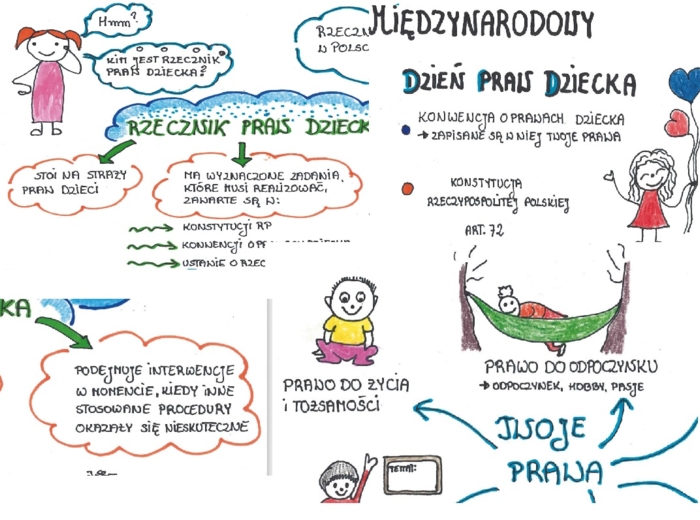 Hmm?
KIM JEST RZECZNIK
PRAW DZIECKA?
RZECZN
W POLSC
RZECZNIK PRAW DZIECK
STOI NA STRAŻY
PRAW DZIECI
MA WYZNACZONE ZADANIA,
KTÓRE MUSI REALIZOWAĆ,
ZAWARTE SĄ W:
KONSTYTUCJI RP
KONWENCJI O
USTAWIE O RZEC
KA
PODEJMUJE INTERWENCJE
W MOMENCIE, KIEDY INNE
STOSOWANE PROCEDURY
OKAZAŁY SIĘ NIESKUTECZNE
MIĘDZYNARODOWY
DZIEŃ PRAW DZIECKA
KONWENCJA O PRAWACH DZIECKA
→ ZAPISANE SĄ W NIEJ TWOJE PRAWA
KONSTYTUCJA
RZECZYPOSPOLITEJ POLSKIEJ
ART. 72
PRAWO DO ŻYCIA
i TOŻSAMOŚCI
PRAWO DO ODPOCZYNKU
→ ODPOCZYNEK, HOBBY, PASJE
TWOJE
PRAWA
TEMAT: